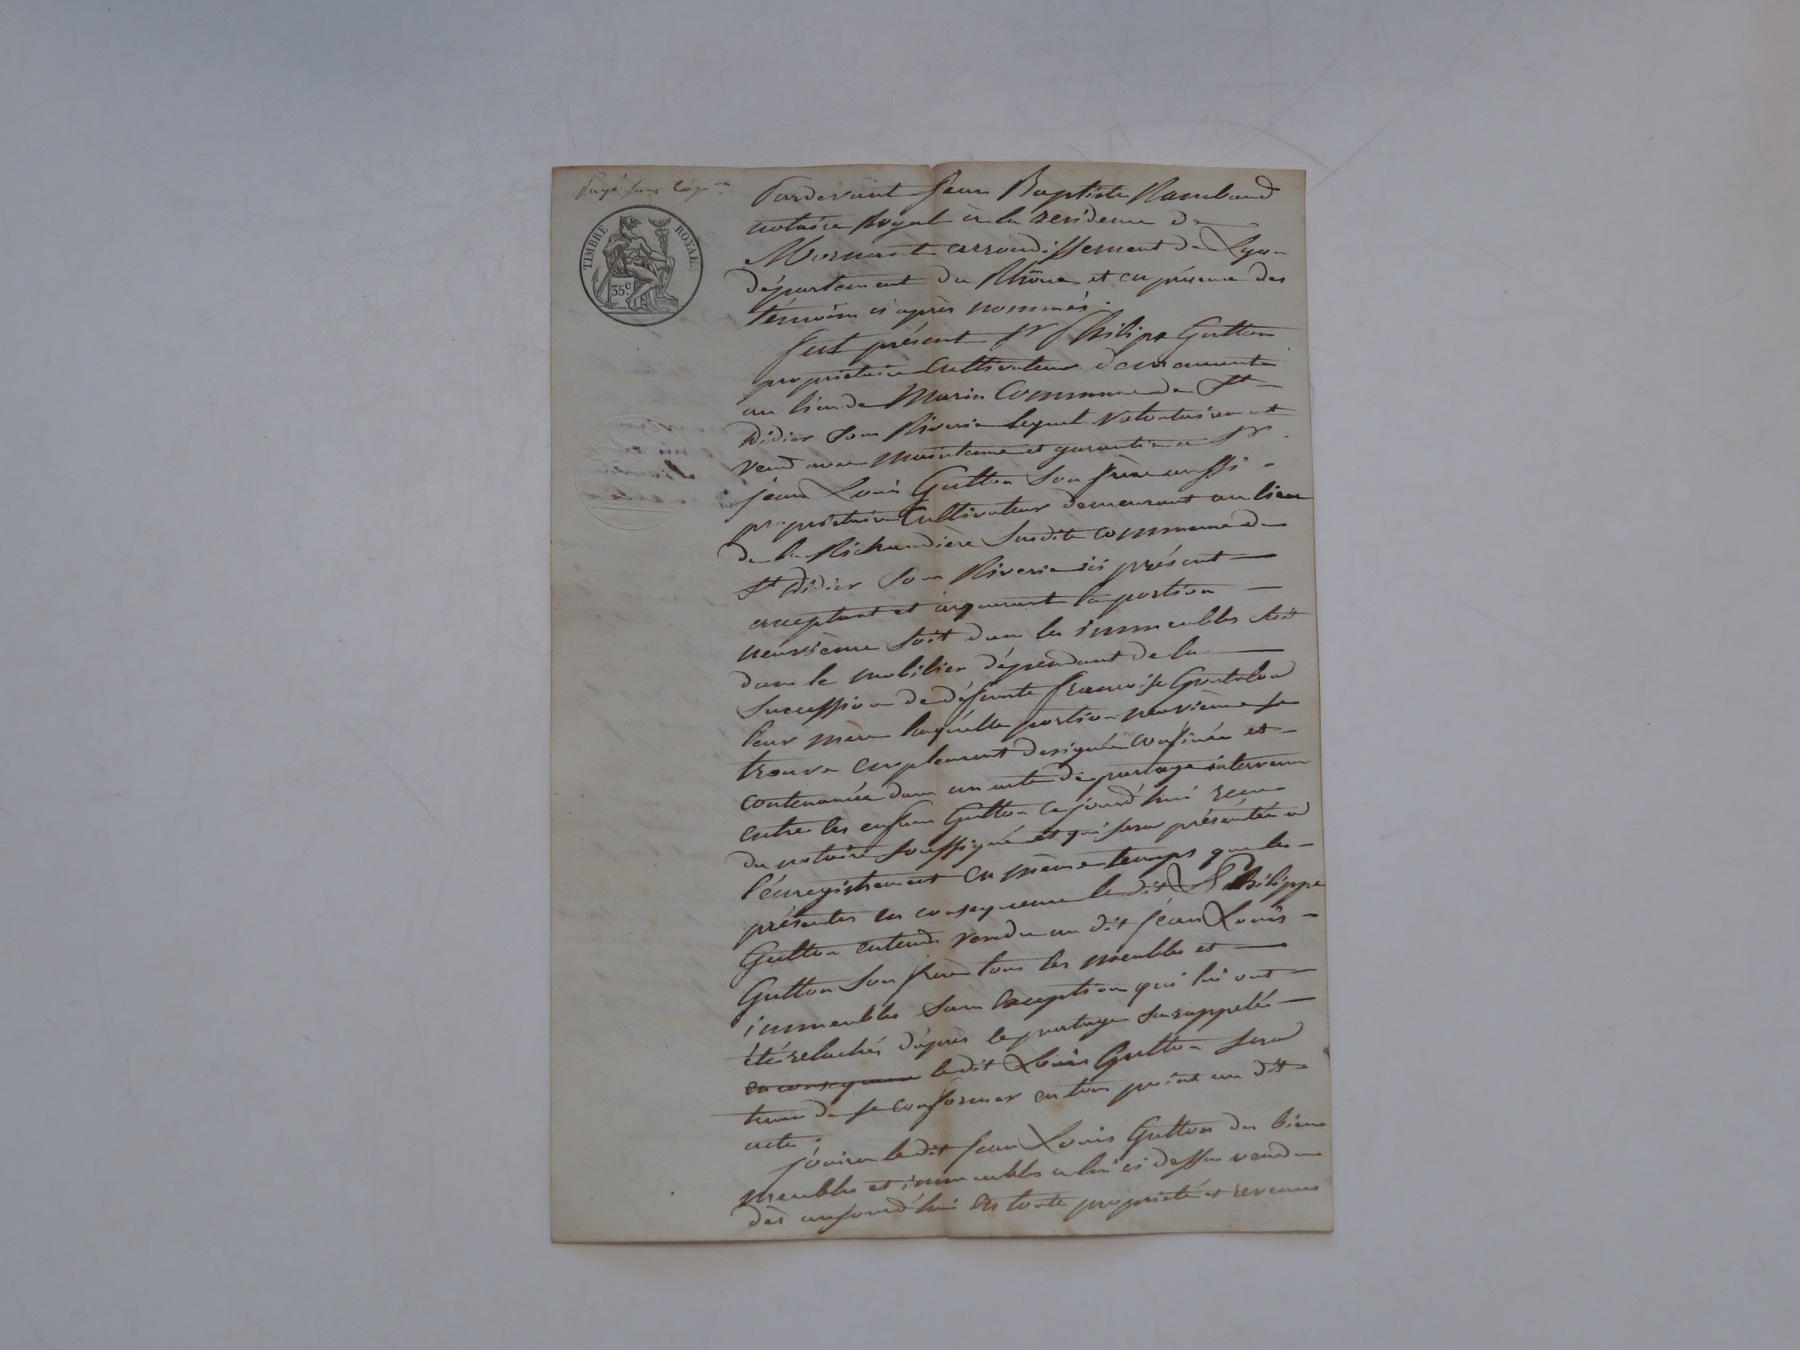 TIMBRE ROYAL.
35c
Pardevant Jean Baptiste Rambaud
notaire Royal à la residence de
Mornant arrondissement de Lyon
département du Rhône et en présence des
témoins ci après nommés.
fut présent Sr Philipe Gutton
propriétaire Cultivateur demeurant
au lieu de Marin Commune de St
Didier Sous Riverie lequel volontairement
vend avec maintenue et garantie a Sr
jean Louis Gutton Son frère aussi
propriétaire Cultivateur demeurant au lieu
de la Richaudière Susdite commune de
St Didier Sous Riverie ici présent
acceptant et acquerant la portion
neuvième Soit dans les immeubles Soit
dans le mobilier dépendant de la
Succession de défunte françoise
leur mère laquelle portion neuvième se
trouve amplement designée confinée et
contenancée dans un acte de partage intervenu
entre les enfans Gutton cejourd'hui reçu
du notaire Soussigné et qui sera présenté a
l'enregistrement en même temps que les
présentes en consequence le dit S Philippe
Gutton entend vendre au dit jean Louis
Gutton Son frère tous les meubles et
immeubles Sans Exception qui lui ont
été relachés d'après le partage Susrappelé
en consequence le dit Louis Gutton sera
tenu de se conformer en tous point au dit
acte.
jouira le dit jean Louis Gutton des biens
meubles et immeubles a lui ci dessus vendus
dès aujourd'hui En toute propriété et revenus